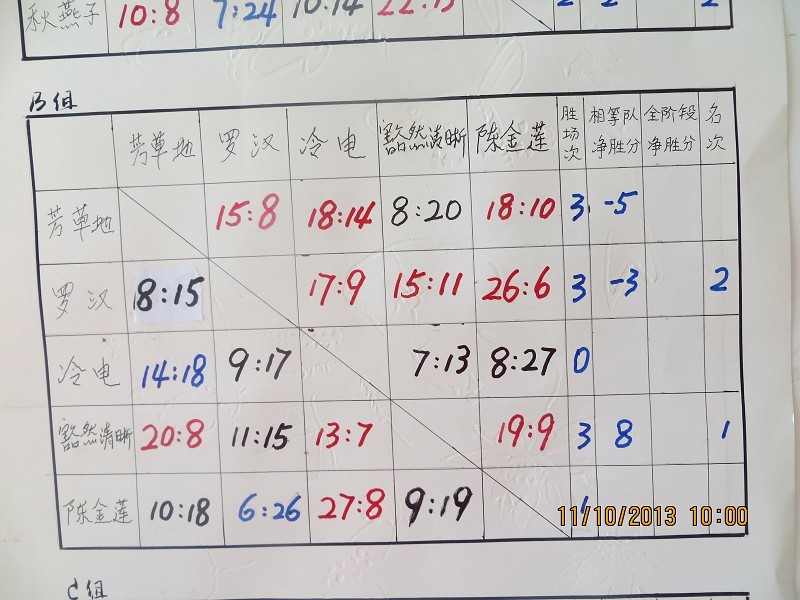 秋燕子 10:8 7:24 10:14 22:13 2 2 2
B组
芳草地 罗汉 冷电 豁然清晰 陈金莲 胜场次 相等队净胜分 全阶段净胜分 名次
芳草地 15:8 18:14 8:20 18:10 3 -5
罗汉 8:15 17:9 15:11 26:6 3 -3 2
冷电 14:18 9:17 7:13 8:27 0
豁然清晰 20:8 11:15 13:7 19:9 3 8 1
陈金莲 10:18 6:26 27:8 9:19 1
11/10/2013 10:00
C组